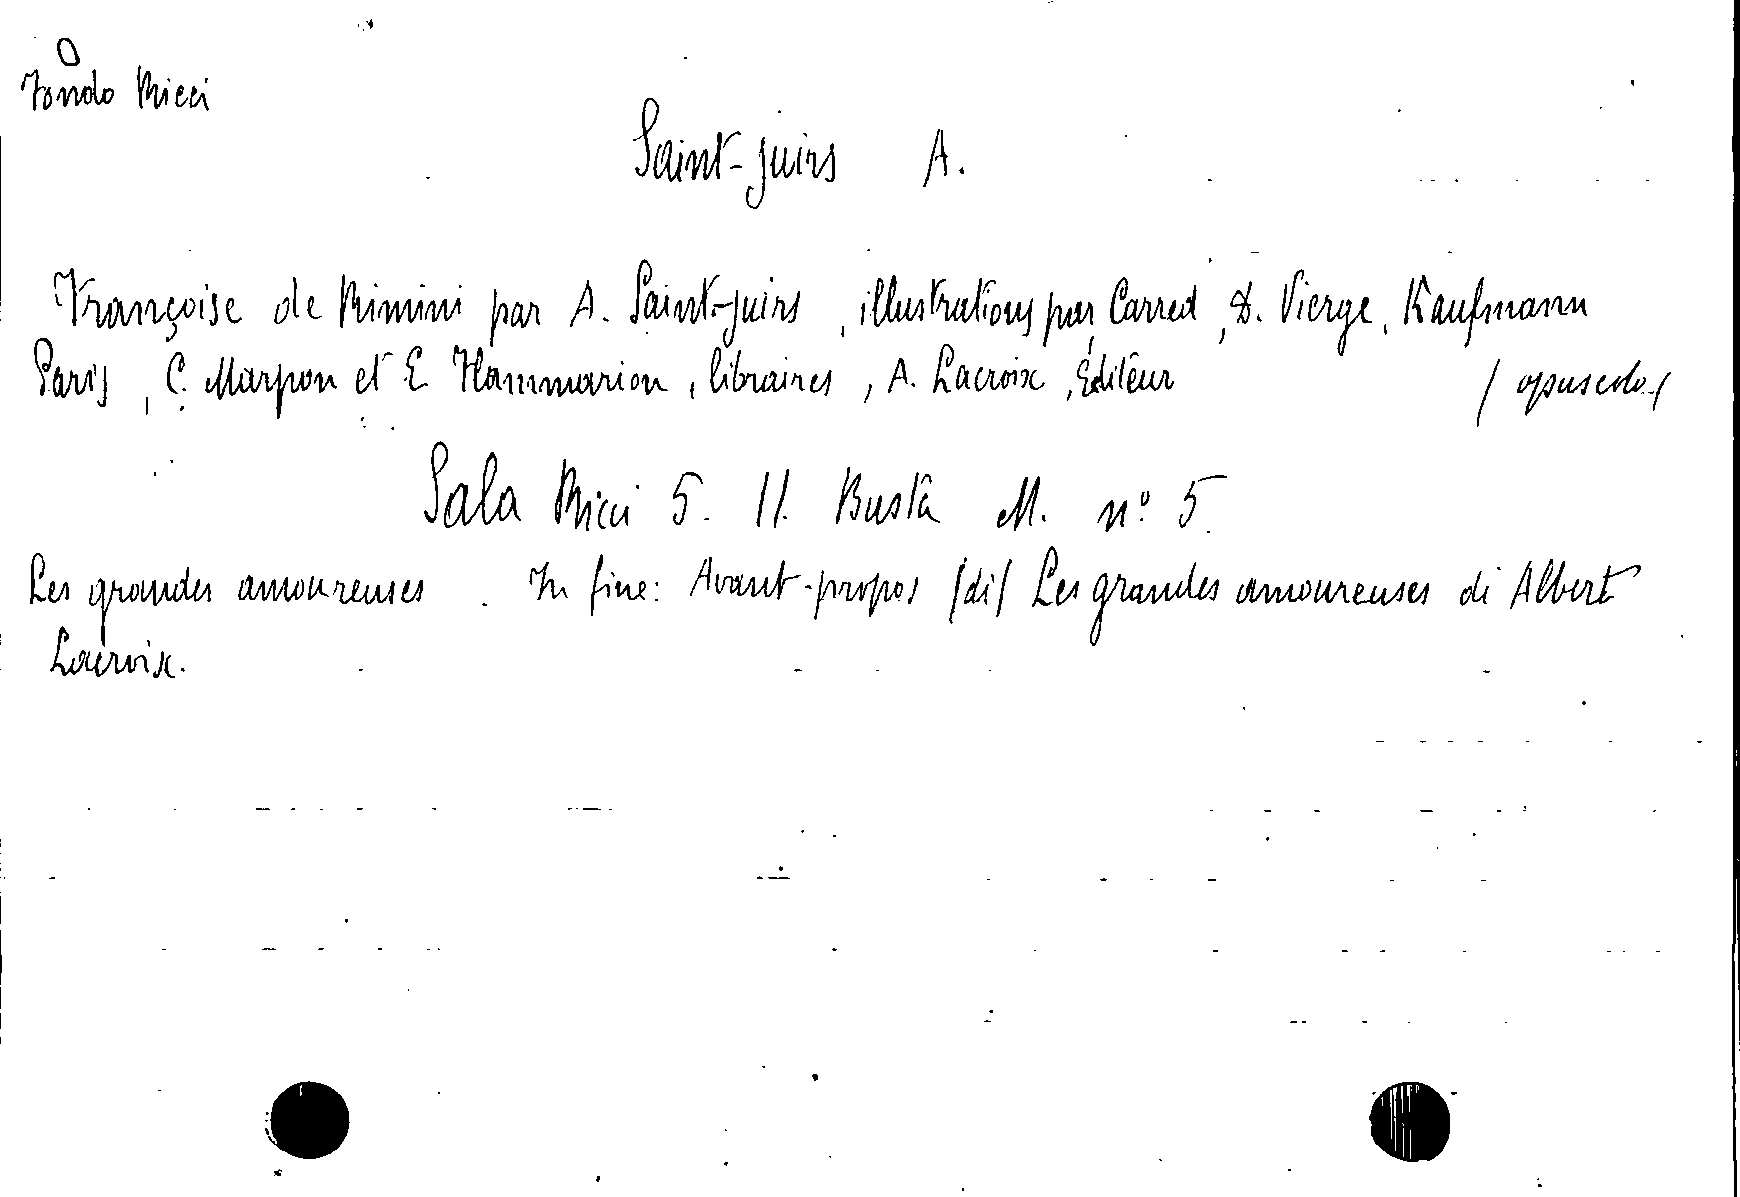 O
Fondo Ricci
Saint-Juirs A.
Françoise de Rimini par A. Saint-Juirs, illustrations par Carred, D. Vierge, Kaufmann
Paris, C. Marpon et E. Flammarion, libraires, A. Lacroix, Éditeur / opuscolo /
Sala Ricci 5. II. Busta M. n° 5.
Les grandes amoureuses. In fine: Avant-propos /di/ Les grandes amoureuses di Albert
Lacroix.